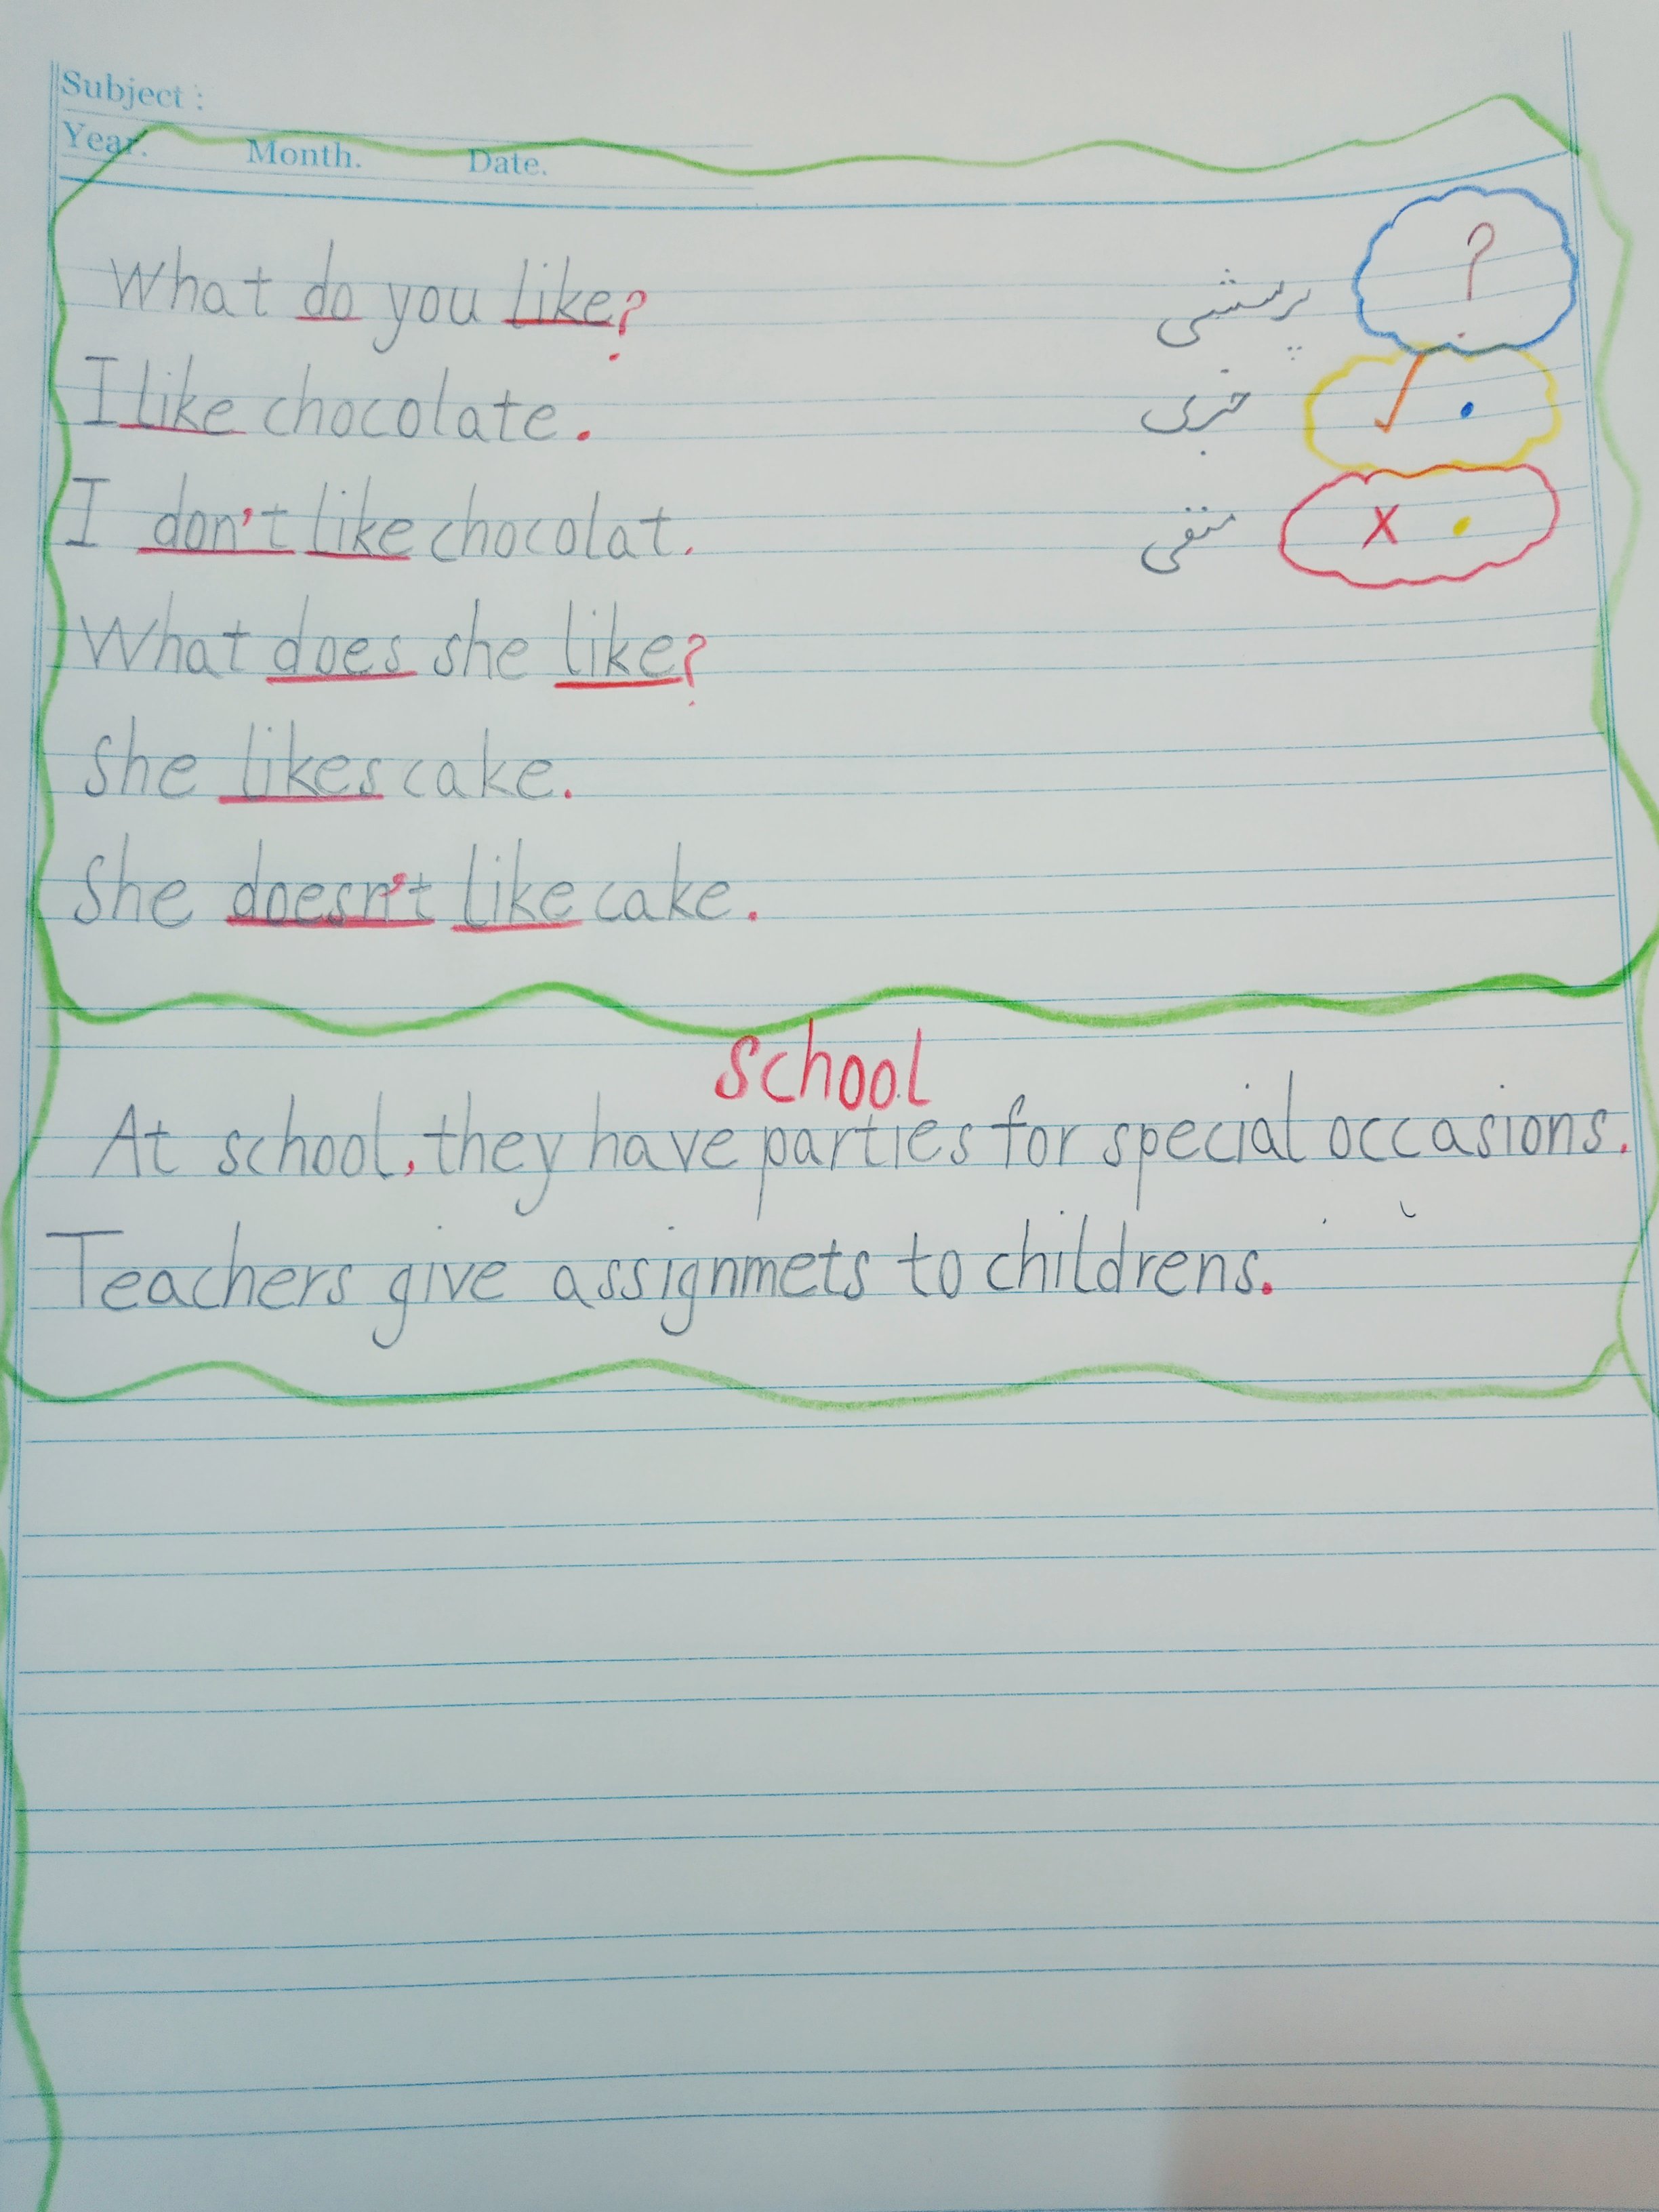 Subject :
Year. Month. Date.
What do you like? پرسشی ?
I like chocolate. خبری ✓ .
I don't like chocolat. منفی X .
What does she like?
She likes cake.
She doesn't like cake.
School
At school, they have parties for special occasions.
Teachers give assignmets to childrens.